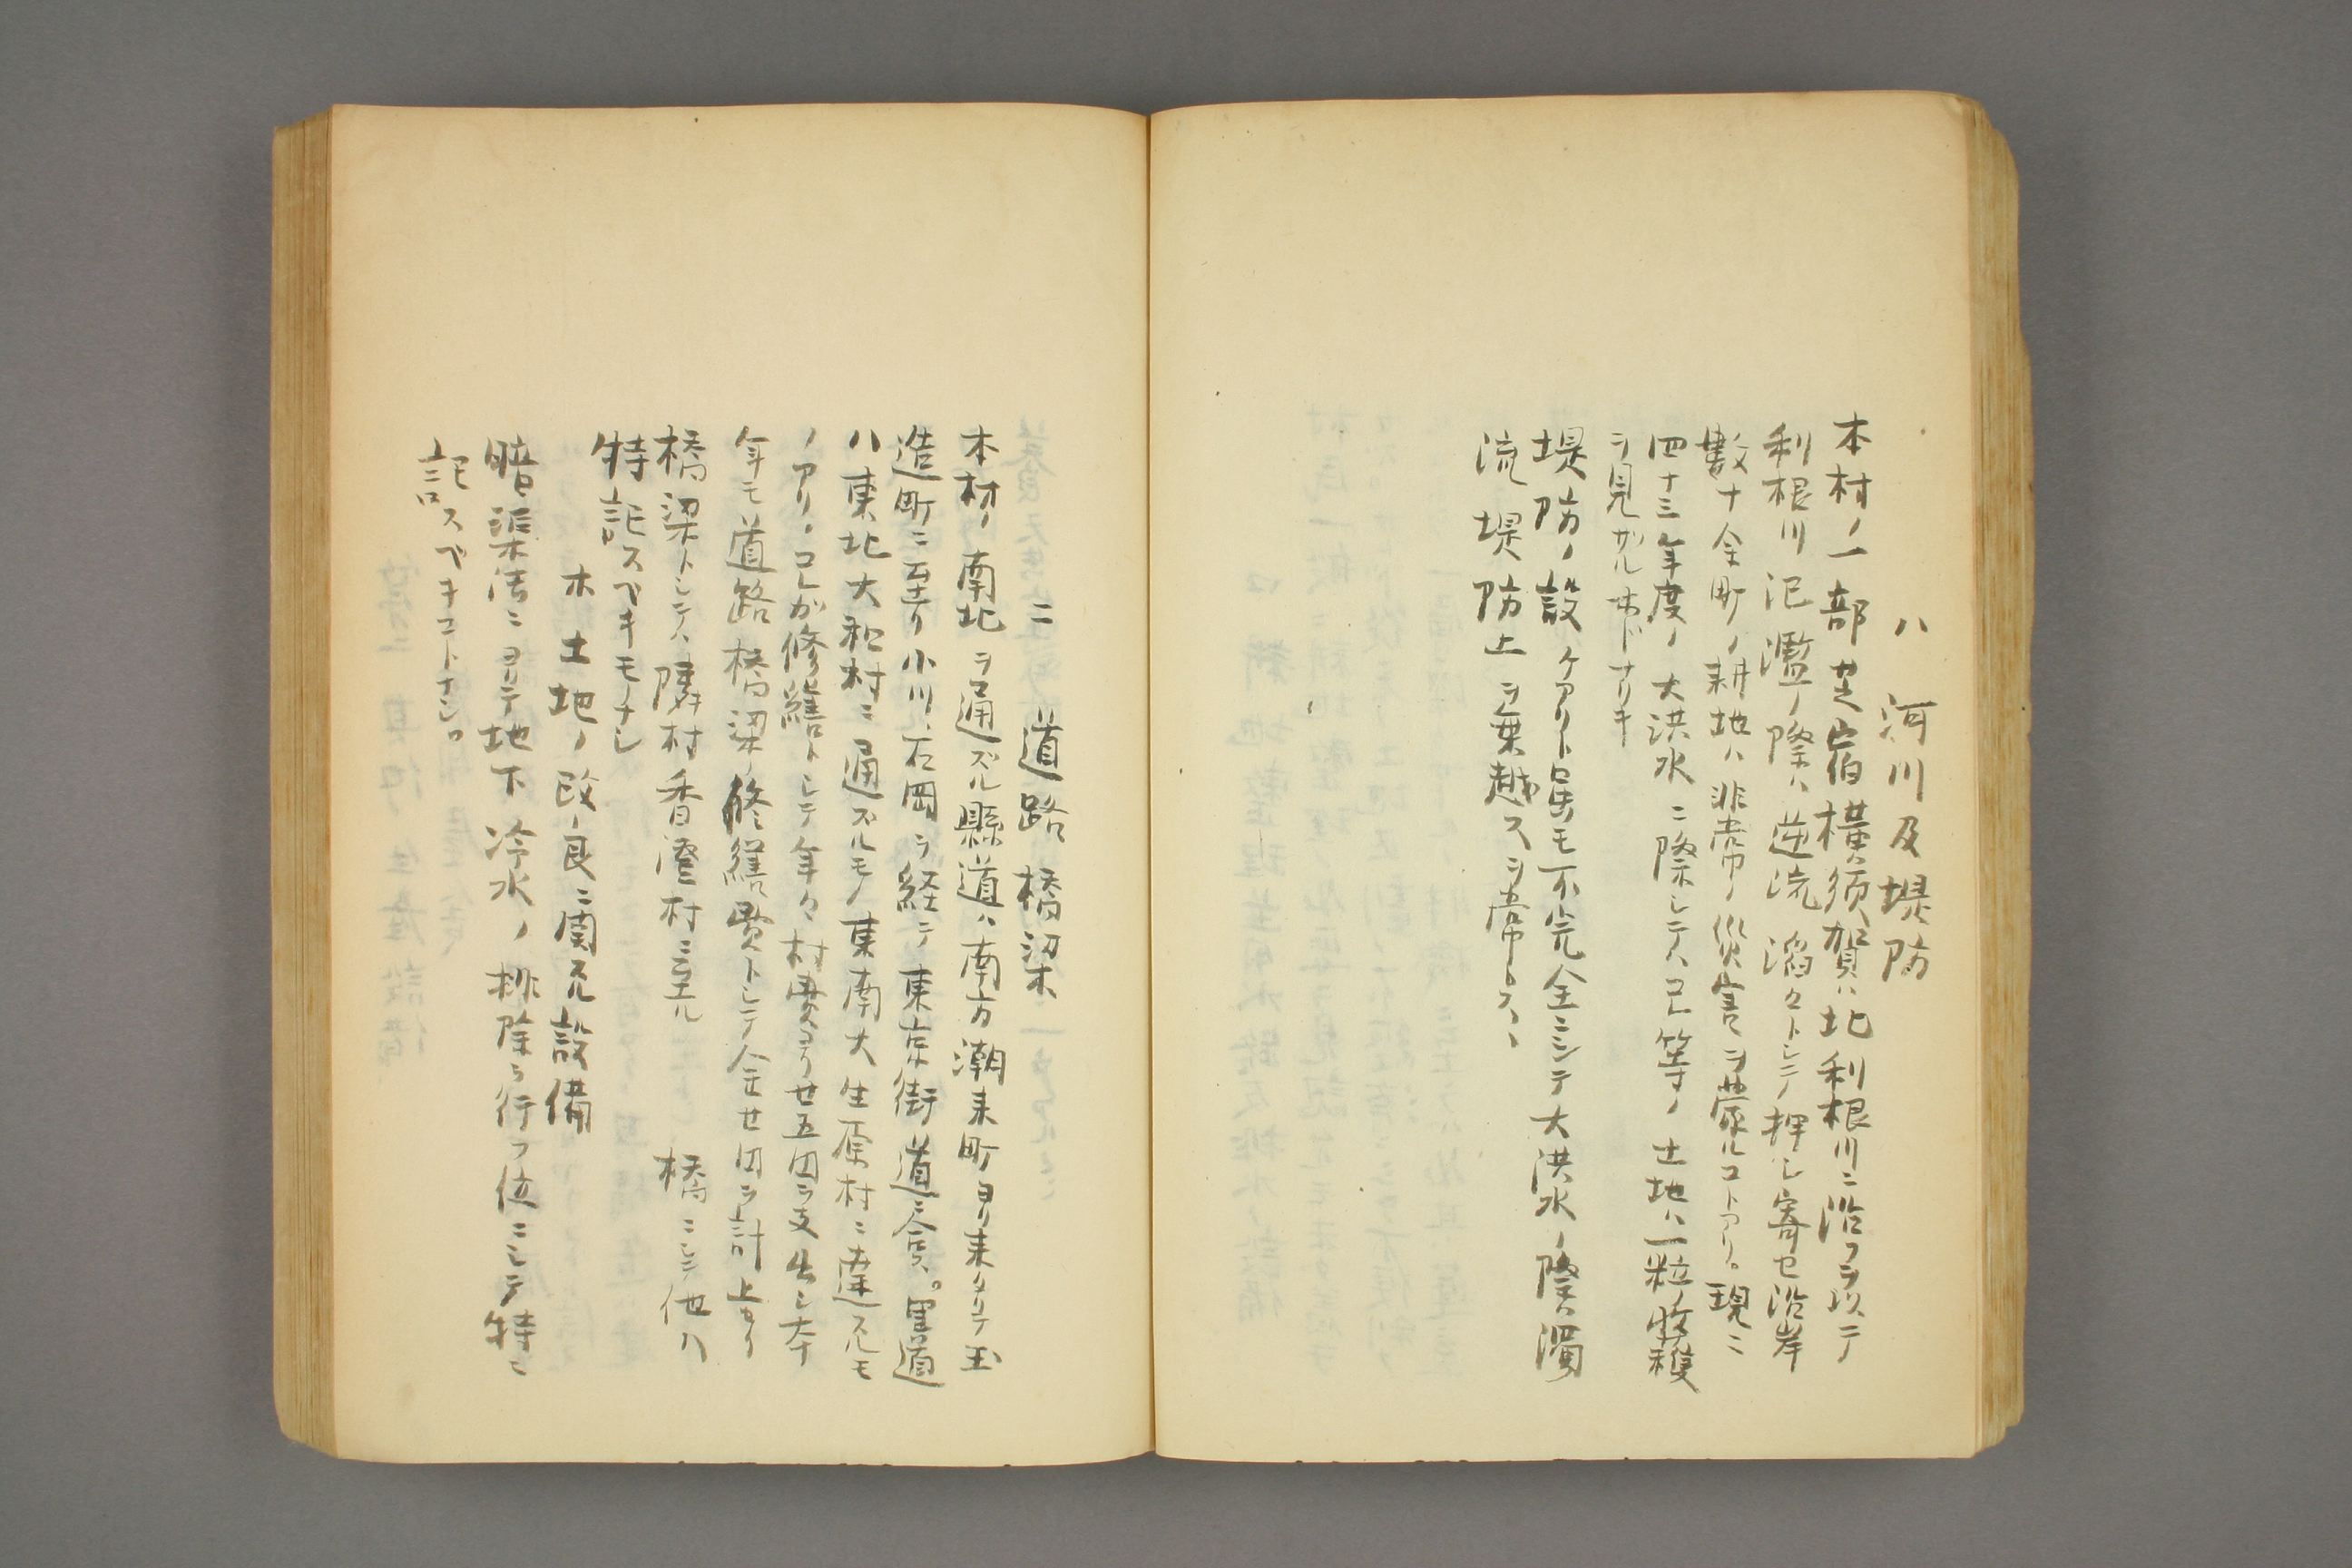 ハ 河川及堤防
本村ノ一部芝宿横須賀ハ北利根川ニ沿フヲ以テ
利根川氾濫ノ際ハ逆流滔々トシテ押シ寄セ沿岸
數十余町ノ耕地ハ非常ノ災害ヲ蒙ルコトアリ。現ニ
四十三年度ノ大洪水ニ際シテハコレ等ノ土地ハ一粒ノ收穫
ヲ見ザルホドナリキ
堤防ノ設ケアリト雖モ不完全ニシテ大洪水ノ際ハ濁
流堤防上ヲ乗越スヲ常トス、
ニ 道路橋梁
本村ノ南北ヲ通ズル縣道ハ南方潮来町ヨリ来タリテ玉
造町ニ至リ小川、石岡ヲ経テ東京街道ニ合ス。里道
ハ東北大和村ニ通ズルモノ東南大生原村ニ達スルモ
ノアリ。コレガ修繕トシテ年々村費ヨリ廿五円ヲ支出シ本
年モ道路橋梁ノ修繕費トシテ金廿円ヲ計上セリ
橋梁トシテハ隣村香澄村ニ至ル 橋ニシテ他ハ
特記スベキモノナシ
ホ 土地ノ改良ニ関スル設備
暗渠法ニヨリテ地下冷水ノ排除ヲ行フ位ニシテ特ニ
記スベキコトナシ。